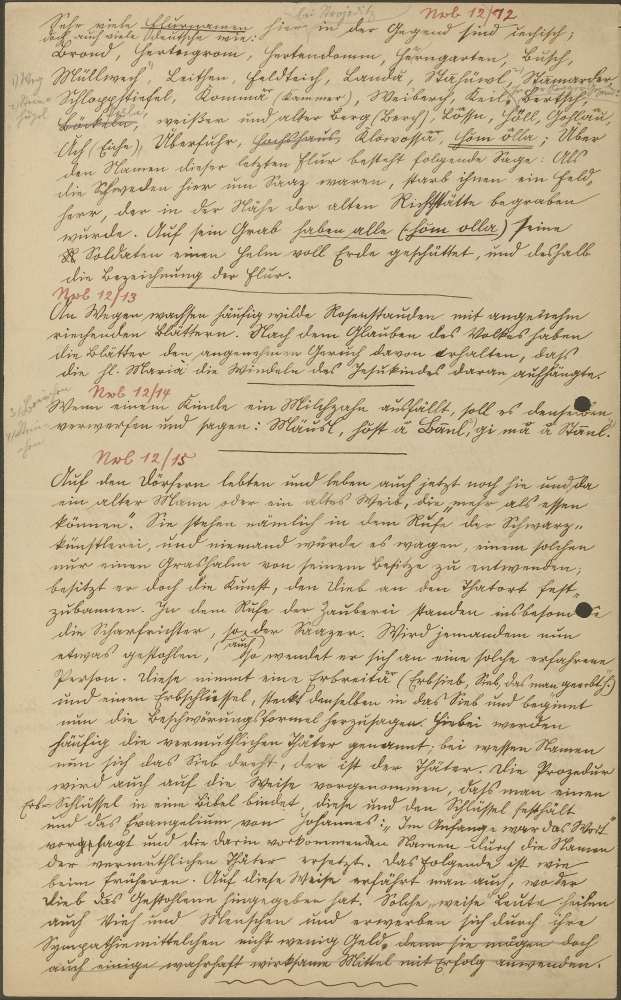 bei Trojeditz Nrb 12/12
Sehr viele Flurnamen hier in der Gegend sind czechisch;
doch auch viele deutsche wie:
Brand, Hertengrom, Hertendomm, Herrngarten, Busch,
Müllwech, Leithen, Feldteich, Landä, Stahüwl, Stamarder,
Schloppstiefel, Kommä (Kammer), Weiberch, Keil, Bertsch,
weißer und alter Berg (Berch), Lössn, Höll, Goßlau,
Ach (Eiche), Überfuhr, Klowossa, höm olla; Über
den Namen dieser letzten Flur besteht folgende Sage: Als
die Schweden hier um Saaz waren, starb ihnen ein Feld-
herr, der in der Nähe der alten Richtstätte begraben
wurde. Auf sein Grab haben alle (höm olla) seine
Soldaten einen Helm voll Erde geschüttet, und deshalb
die Bezeichnung der Flur.
Nrb 12/13
An Wegen wachsen häufig wilde Rosenstauden mit angenehm
riechenden Blättern. Nach dem Glauben des Volkes haben
die Blätter den angenehmen Geruch davon erhalten, daß
die hl. Maria die Windeln des Jesukindes daran aufhängte.
Nrb 12/14
Wenn einem Kinde ein Milchzahn ausfällt, soll es denselben
verwerfen und sagen: Mäusl, höst ä Baınl, gi mä ä Stanl.
Nrb 12/15
Auf den Dörfern lebten und leben auch jetzt noch hie und da
ein alter Mann oder ein altes Weib, die „mehr als essen
können". Sie stehen nämlich in dem Rufe der Schwarz-
künstlerei, und niemand würde es wagen, einem solchen
nur einen Grashalm von seinem Besitze zu entwenden;
besitzt er doch die Kunst, den Dieb an den Thatort fest-
zubannen. In dem Rufe der Zauberei standen insbesondere
die Scharfrichter, so auch der Saazer. Wird jemandem nun
etwas gestohlen, so wendet er sich an eine solche erfahrene
Person. Diese nimmt eine Erbreitä (Erbsieb, Sieb, das man geerbt h.)
und einen Erbschlüssel, steckt denselben in das Sieb und beginnt
nun die Beschwörungsformel herzusagen. Hiebei werden
häufig die vermuthlichen Thäter genannt; bei wessen Namen
nun sich das Sieb dreht, der ist der Thäter. Die Prozedur
wird auch auf die Weise vorgenommen, daß man einen
Erb-Schlüssel in eine Bibel bindet, diese und den Schlüssel festhält
und das Evangelium von Johannes: „Im Anfange war das Wort"
vorgesagt und die darin vorkommenden Namen durch die Namen
der vermuthlichen Thäter ersetzt. Das folgende ist wie
beim früheren. Auf diese Weise erfährt man auch, wo der
Dieb das Gestohlene hingegeben hat. Solche „weise" Leute heilen
auch Vieh und Menschen und erwerben sich durch ihre
Sympathiemittelchen nicht wenig Geld, denn sie mögen doch
auch einige wahrhaft wirksame Mittel mit Erfolg anwenden.